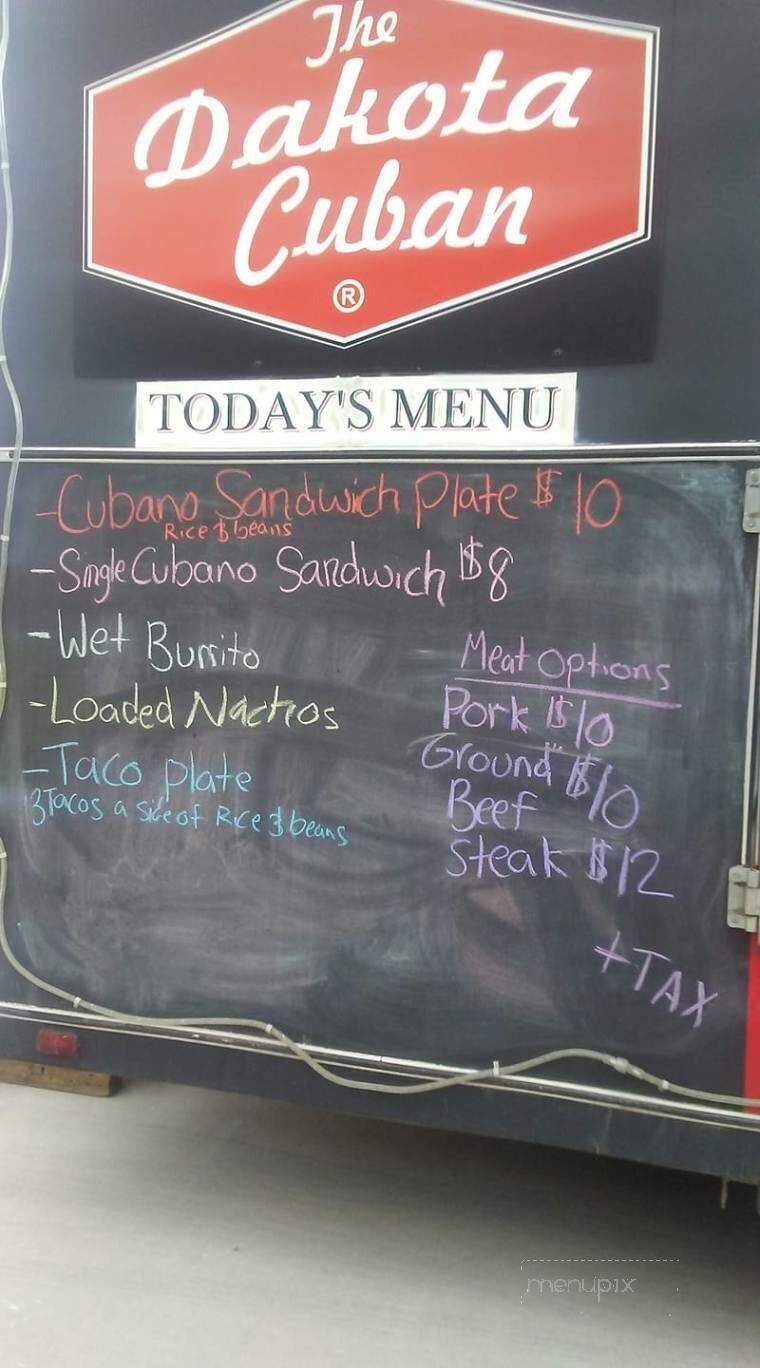 The
Dakota
Cuban
®
TODAY'S MENU
-Cubano Sandwich Plate $10
Rice & beans
-Single Cubano Sandwich $8
-Wet Burrito
-Loaded Nachos
-Taco plate
3 Tacos a side of Rice & beans
Meat Options
Pork $10
Ground $10
Beef
Steak $12
+TAX
menupix